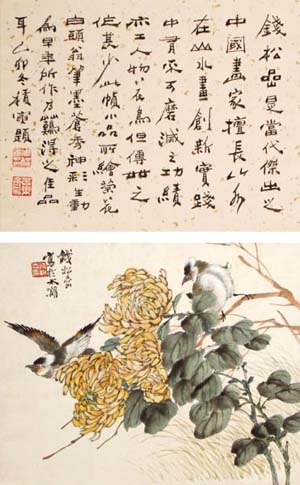 錢松嵒是當代傑出之
中國畫家擅長山水
在山水畫創新實踐
中有不可磨滅之功績
亦工人物花鳥但傳世之
作甚少此幀小品所繪菊花
白頭翁筆墨蒼秀神形生動
為早年所作乃難得之佳品
耳乙卯冬題
錢松嵒
寫於太湖